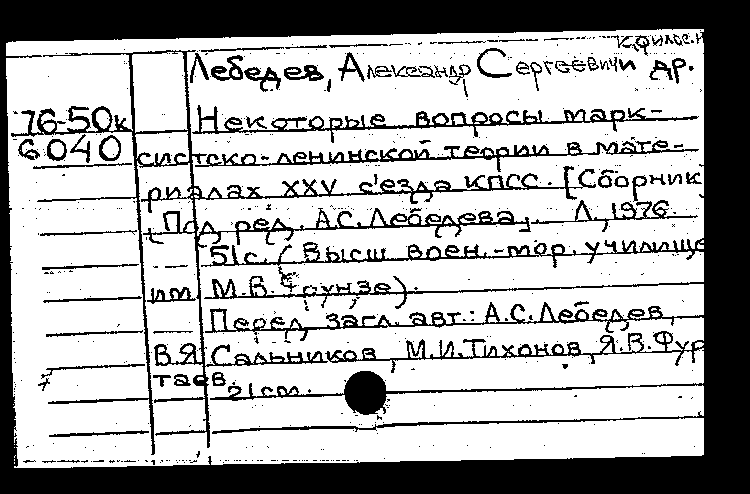 К. филос. н
Лебедев, Александр Сергеевич и др.
76-50к Некоторые вопросы марк-
6040 систско-ленинской теории в мате-
риалах XXV с'езда КПСС. [Сборник]
[Под ред. А.С. Лебедева]. Л., 1976.
51с. (Высш воен.-мор. училище
им М.В. Фрунзе).
Перед загл. авт.: А.С. Лебедев,
В.Я. Сальников, М.И. Тихонов, Я.В. Фур
таев. 21 см.